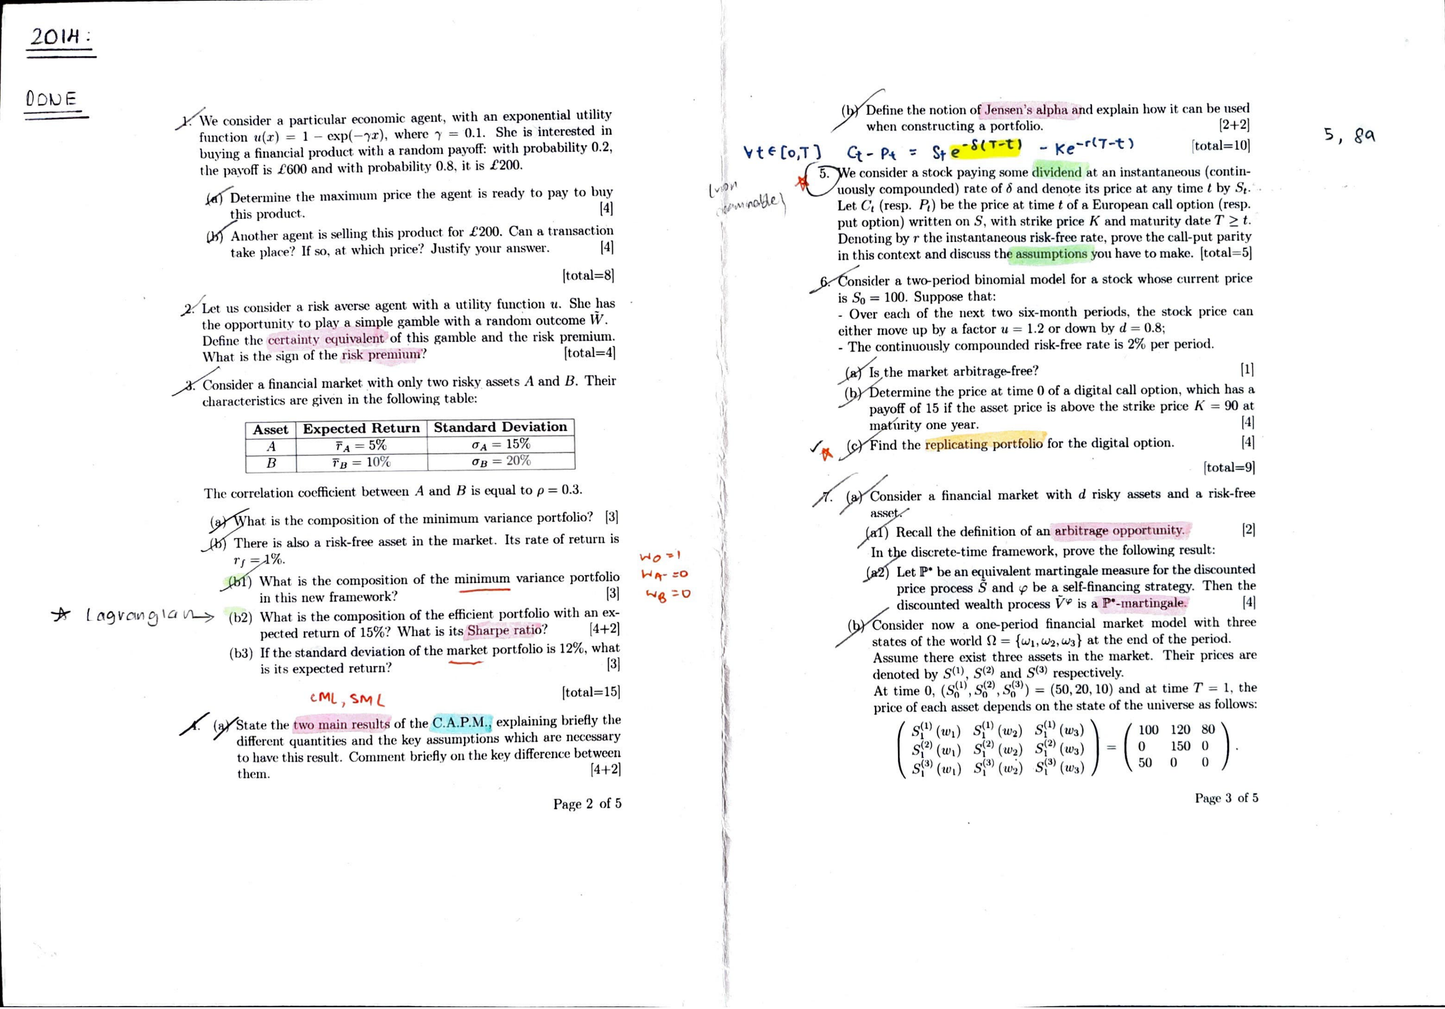 2014:
DONE
1. We consider a particular economic agent, with an exponential utility
function u(x) = 1 − exp(−γx), where γ = 0.1. She is interested in
buying a financial product with a random payoff: with probability 0.2,
the payoff is £600 and with probability 0.8, it is £200.
(a) Determine the maximum price the agent is ready to pay to buy
this product. [4]
(b) Another agent is selling this product for £200. Can a transaction
take place? If so, at which price? Justify your answer. [4]
[total=8]
2. Let us consider a risk averse agent with a utility function u. She has
the opportunity to play a simple gamble with a random outcome W̃.
Define the certainty equivalent of this gamble and the risk premium.
What is the sign of the risk premium? [total=4]
3. Consider a financial market with only two risky assets A and B. Their
characteristics are given in the following table:
Asset Expected Return Standard Deviation
A r̄A = 5% σA = 15%
B r̄B = 10% σB = 20%
The correlation coefficient between A and B is equal to ρ = 0.3.
(a) What is the composition of the minimum variance portfolio? [3]
(b) There is also a risk-free asset in the market. Its rate of return is
rf = 1%.
(b1) What is the composition of the minimum variance portfolio
in this new framework? [3]
w0 = 1
wA = 0
wB = 0
☆ Lagrangian →
(b2) What is the composition of the efficient portfolio with an ex-
pected return of 15%? What is its Sharpe ratio? [4+2]
(b3) If the standard deviation of the market portfolio is 12%, what
is its expected return? [3]
[total=15]
CML, SML
4. (a) State the two main results of the C.A.P.M., explaining briefly the
different quantities and the key assumptions which are necessary
to have this result. Comment briefly on the key difference between
them. [4+2]
Page 2 of 5
(b) Define the notion of Jensen's alpha and explain how it can be used
when constructing a portfolio. [2+2]
[total=10]
5, 8a
∀t∈[0,T] Ct − Pt = St e^−δ(T−t) − Ke^−r(T−t)
(non
examinable)
5. We consider a stock paying some dividend at an instantaneous (contin-
uously compounded) rate of δ and denote its price at any time t by St.
Let Ct (resp. Pt) be the price at time t of a European call option (resp.
put option) written on S, with strike price K and maturity date T ≥ t.
Denoting by r the instantaneous risk-free rate, prove the call-put parity
in this context and discuss the assumptions you have to make. [total=5]
6. Consider a two-period binomial model for a stock whose current price
is S0 = 100. Suppose that:
- Over each of the next two six-month periods, the stock price can
either move up by a factor u = 1.2 or down by d = 0.8;
- The continuously compounded risk-free rate is 2% per period.
(a) Is the market arbitrage-free? [1]
(b) Determine the price at time 0 of a digital call option, which has a
payoff of 15 if the asset price is above the strike price K = 90 at
maturity one year. [4]
(c) Find the replicating portfolio for the digital option. [4]
[total=9]
7. (a) Consider a financial market with d risky assets and a risk-free
asset.
(a1) Recall the definition of an arbitrage opportunity. [2]
In the discrete-time framework, prove the following result:
(a2) Let P* be an equivalent martingale measure for the discounted
price process S̃ and φ be a self-financing strategy. Then the
discounted wealth process Ṽφ is a P*-martingale. [4]
(b) Consider now a one-period financial market model with three
states of the world Ω = {ω1, ω2, ω3} at the end of the period.
Assume there exist three assets in the market. Their prices are
denoted by S(1), S(2) and S(3) respectively.
At time 0, (S0(1), S0(2), S0(3)) = (50, 20, 10) and at time T = 1, the
price of each asset depends on the state of the universe as follows:
( S1(1)(w1) S1(1)(w2) S1(1)(w3) ) ( 100 120 80 )
( S1(2)(w1) S1(2)(w2) S1(2)(w3) ) = ( 0 150 0 ) .
( S1(3)(w1) S1(3)(w2) S1(3)(w3) ) ( 50 0 0 )
Page 3 of 5